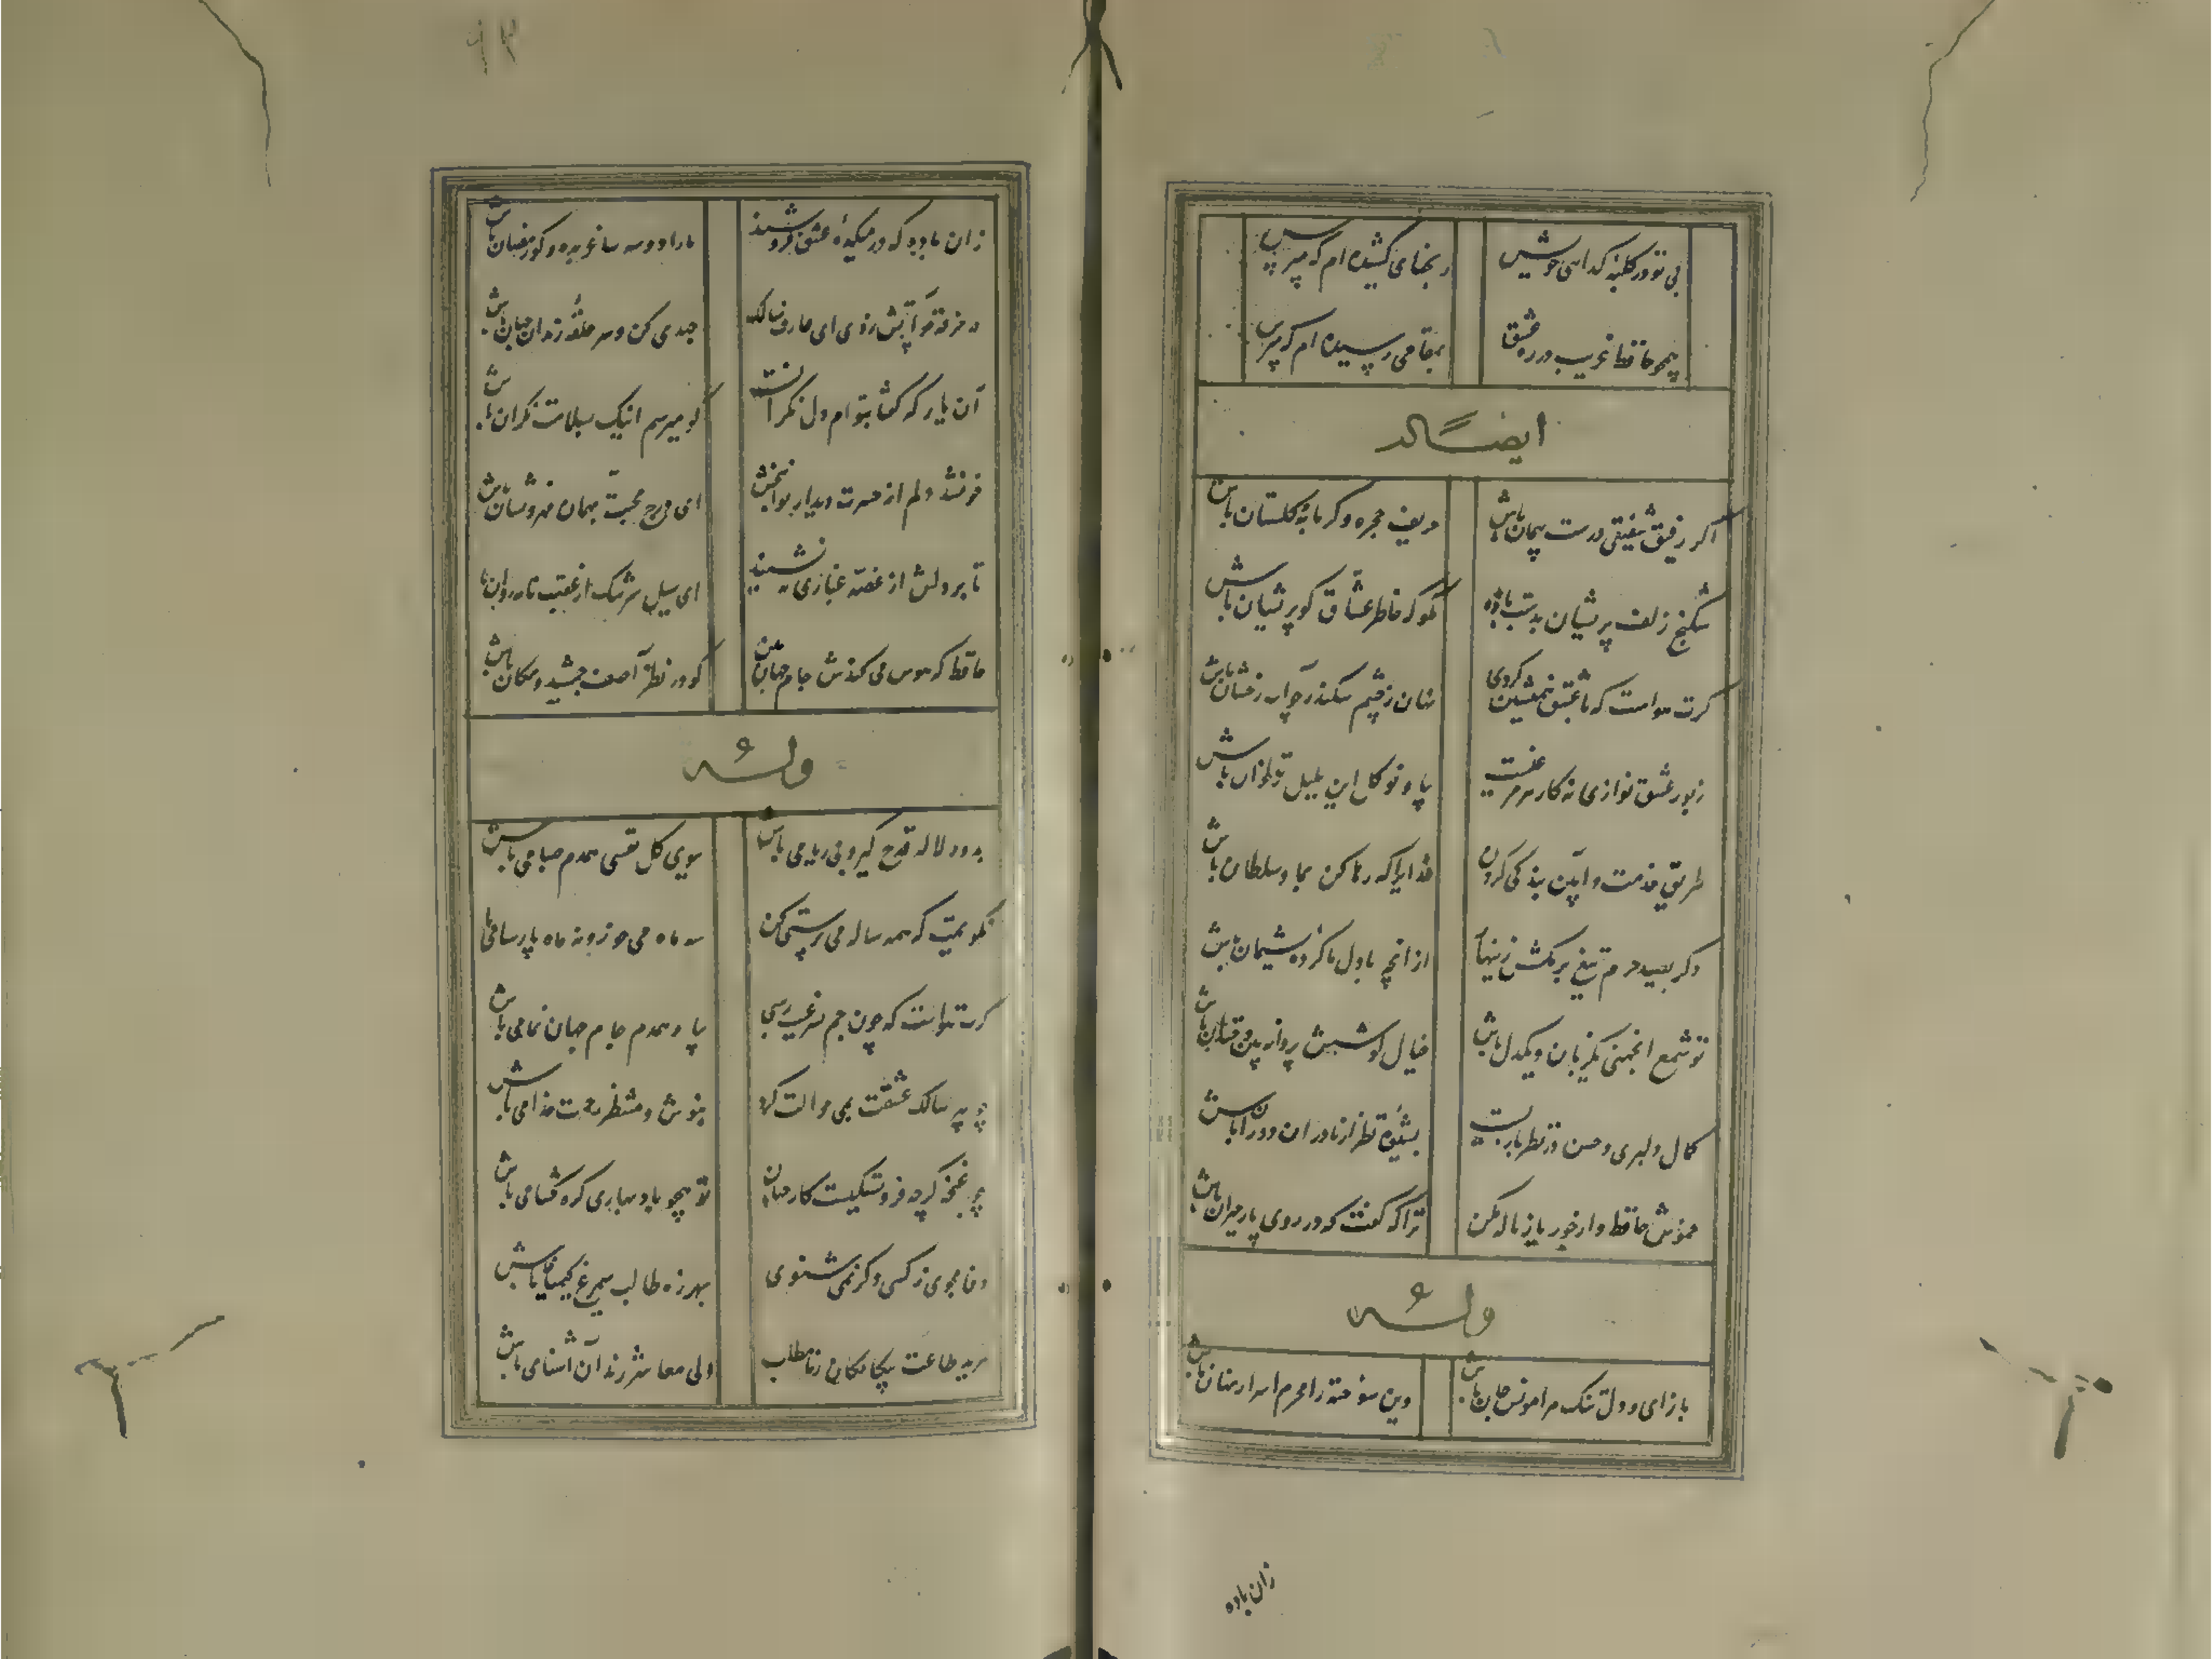 بی تو در کلبه گدایی خویش رنجهایی کشیده ام که مپرس
همچو حافظ غریب در ره عشق بمقامی رسیده ام که مپرس
ایضاً له
اگر رفیق شفیقی درست پیمان باش حریف حجره و گرمابه و گلستان باش
شکنج زلف پریشان بدست باد مده مگو که خاطر عشاق گو پریشان باش
گرت هواست که با عشق همنشین گردی نهان ز چشم سکندر چو آب باش
زبور عشق نوازی نه کار هر مرغیست بیا و نو گل این بلبل غزلخوان باش
طریق خدمت و آیین بندگی کردن خدایرا که رها کن بما و سلطان باش
دگر بصید حرم تیغ بر مکش زنهار از انچه با دل ما کرده پشیمان باش
تو شمع انجمنی یکزبان و یکدل باش خیال کوشش پروانه بین و خندان باش
کمال دلبری و حسن در نظر بازیست بشیوه نظر از نادران دوران باش
خموش حافظ و از جور یار ناله مکن ترا که گفت که در روی یار حیران باش
وله
باز ای و دل تنگ مرا مونس جان باش وین سوخته را محرم اسرار نهان باش
زان باده
۹۳
زان باده که در میکده عشق فروشند ما را دو سه ساغر بده و گو رمضان باش
در خرقه چو آتش زدی ای عارف سالک جهدی کن و سر حلقه رندان جهان باش
آن یار که گفتا بتوام دل نگرانست گو میرسم اینک بسلامت نگران باش
خون شد دلم از حسرت دیدار ای درج محبت بهمان مهر و نشان باش
تا بر دلش از غصه غباری ننشیند ای سیل سرشک از عقب نامه روان باش
حافظ که هوس می کندش جام جهان بین گو در نظر آصف جمشید مکان باش
وله
بدور لاله قدح گیر و بی ریا می باش ببوی گل نفسی همدم صبا می باش
نگویمت که همه ساله می پرستی کن سه ماه می خور و نه ماه پارسا می باش
گرت هواست که چون جم بسر غیب رسی بیا و همدم جام جهان نما می باش
چو پیر سالک عشقت بمی حوالت کرد بنوش و منتظر رحمت خدا می باش
چو غنچه گرچه فرو بستگیست کار جهان تو همچو باد بهاری گره گشا می باش
وفا مجوی ز کس و گر نمی شنوی بهرزه طالب سیمرغ و کیمیا می باش
مرید طاعت بیگانگان حافظ ولی معاشر رندان آشنا می باش